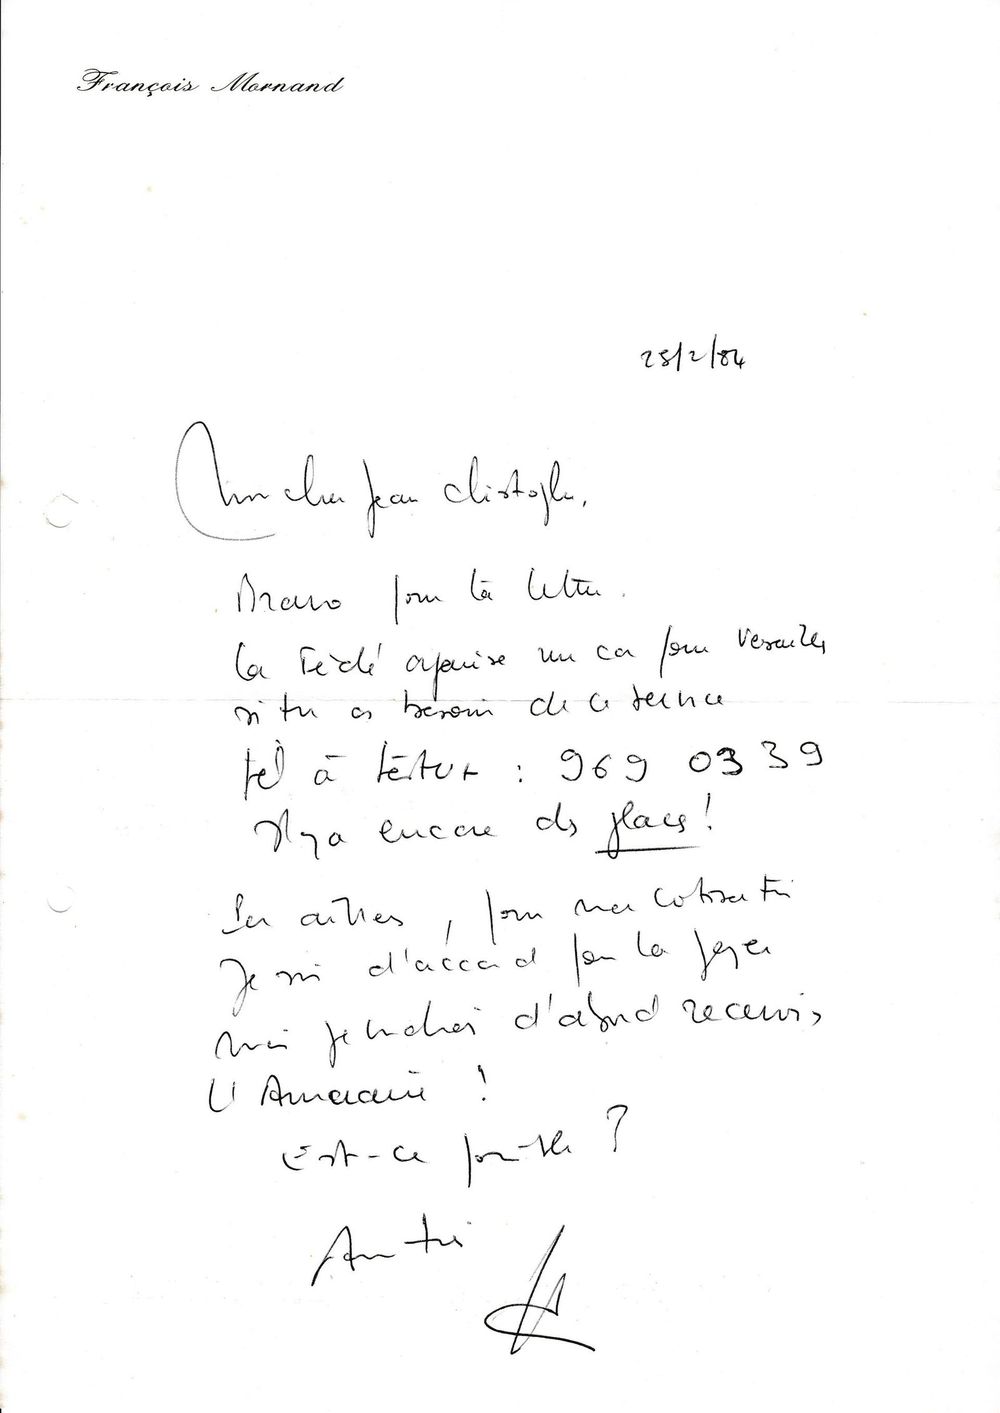 François Mornand
25/2/84
Mon cher Jean Christophe,
Bravo pour ta lettre.
La Fédé organise un car pour Versailles
si tu as besoin de ce service
tel à : 969 03 39
Il y a encore des places !
Par ailleurs, pour ma cotisation
Je suis d'accord pour la payer
mais je voudrais d'abord recevoir,
L'Annuaire !
Est-ce possible ?
Amitié